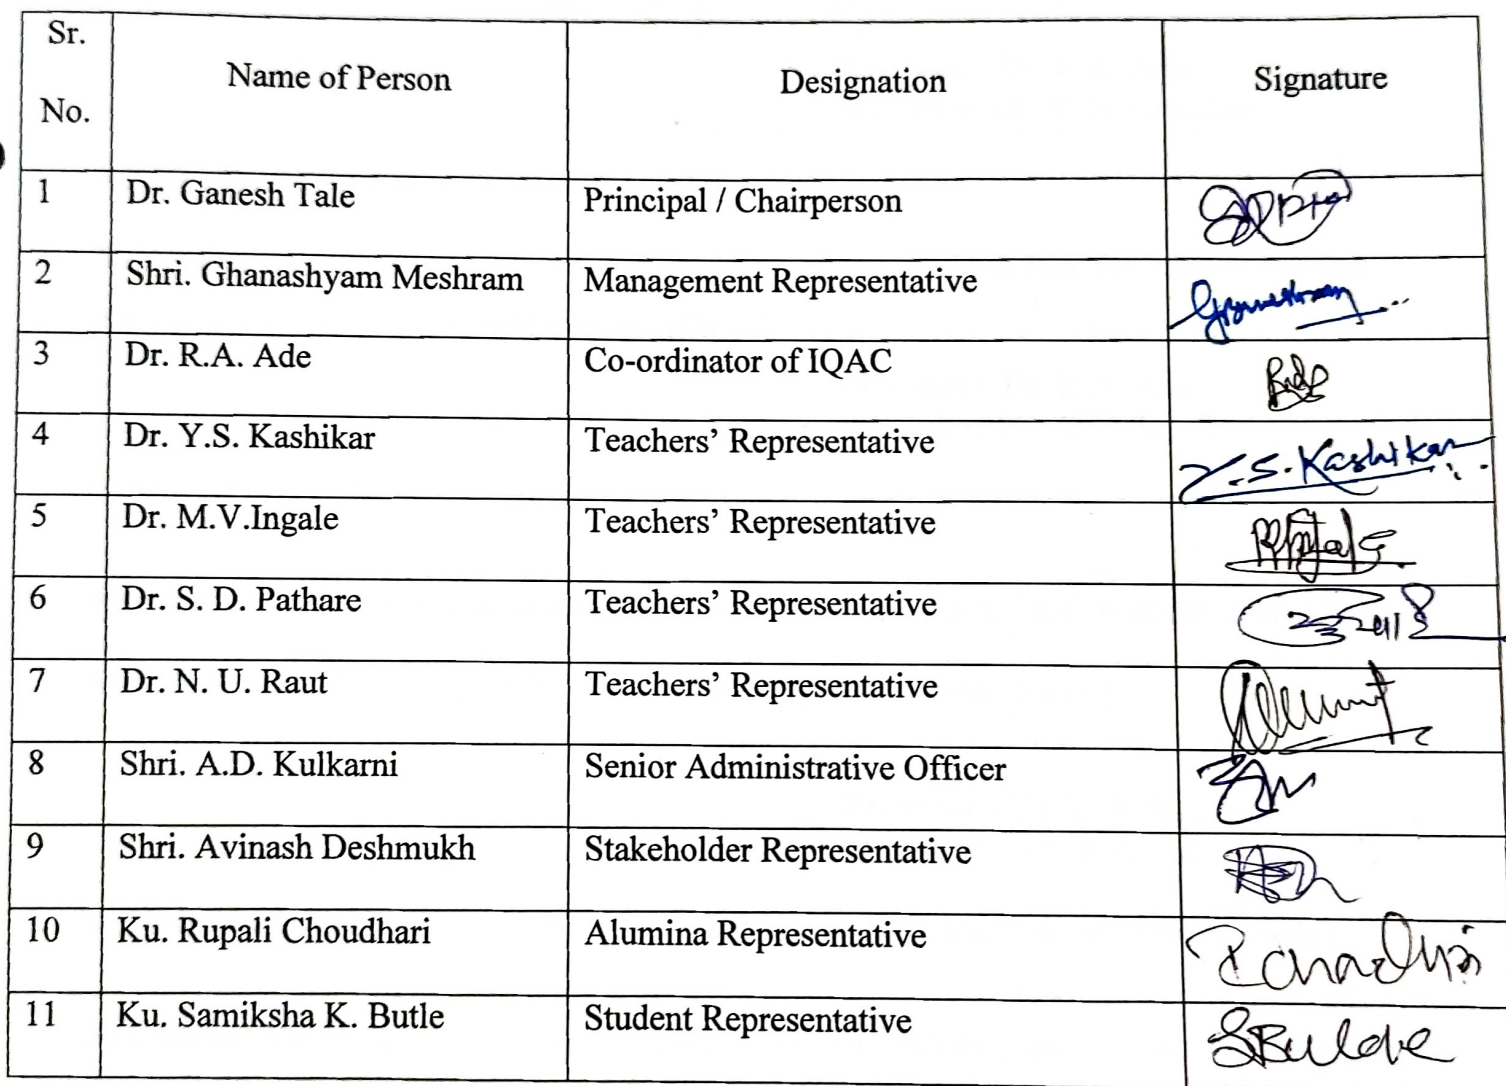 Sr.
No.
Name of Person
Designation
Signature
1 Dr. Ganesh Tale Principal / Chairperson
2 Shri. Ghanashyam Meshram Management Representative
3 Dr. R.A. Ade Co-ordinator of IQAC
4 Dr. Y.S. Kashikar Teachers’ Representative Y.S. Kashikar
5 Dr. M.V.Ingale Teachers’ Representative
6 Dr. S. D. Pathare Teachers’ Representative
7 Dr. N. U. Raut Teachers’ Representative
8 Shri. A.D. Kulkarni Senior Administrative Officer
9 Shri. Avinash Deshmukh Stakeholder Representative
10 Ku. Rupali Choudhari Alumina Representative
11 Ku. Samiksha K. Butle Student Representative